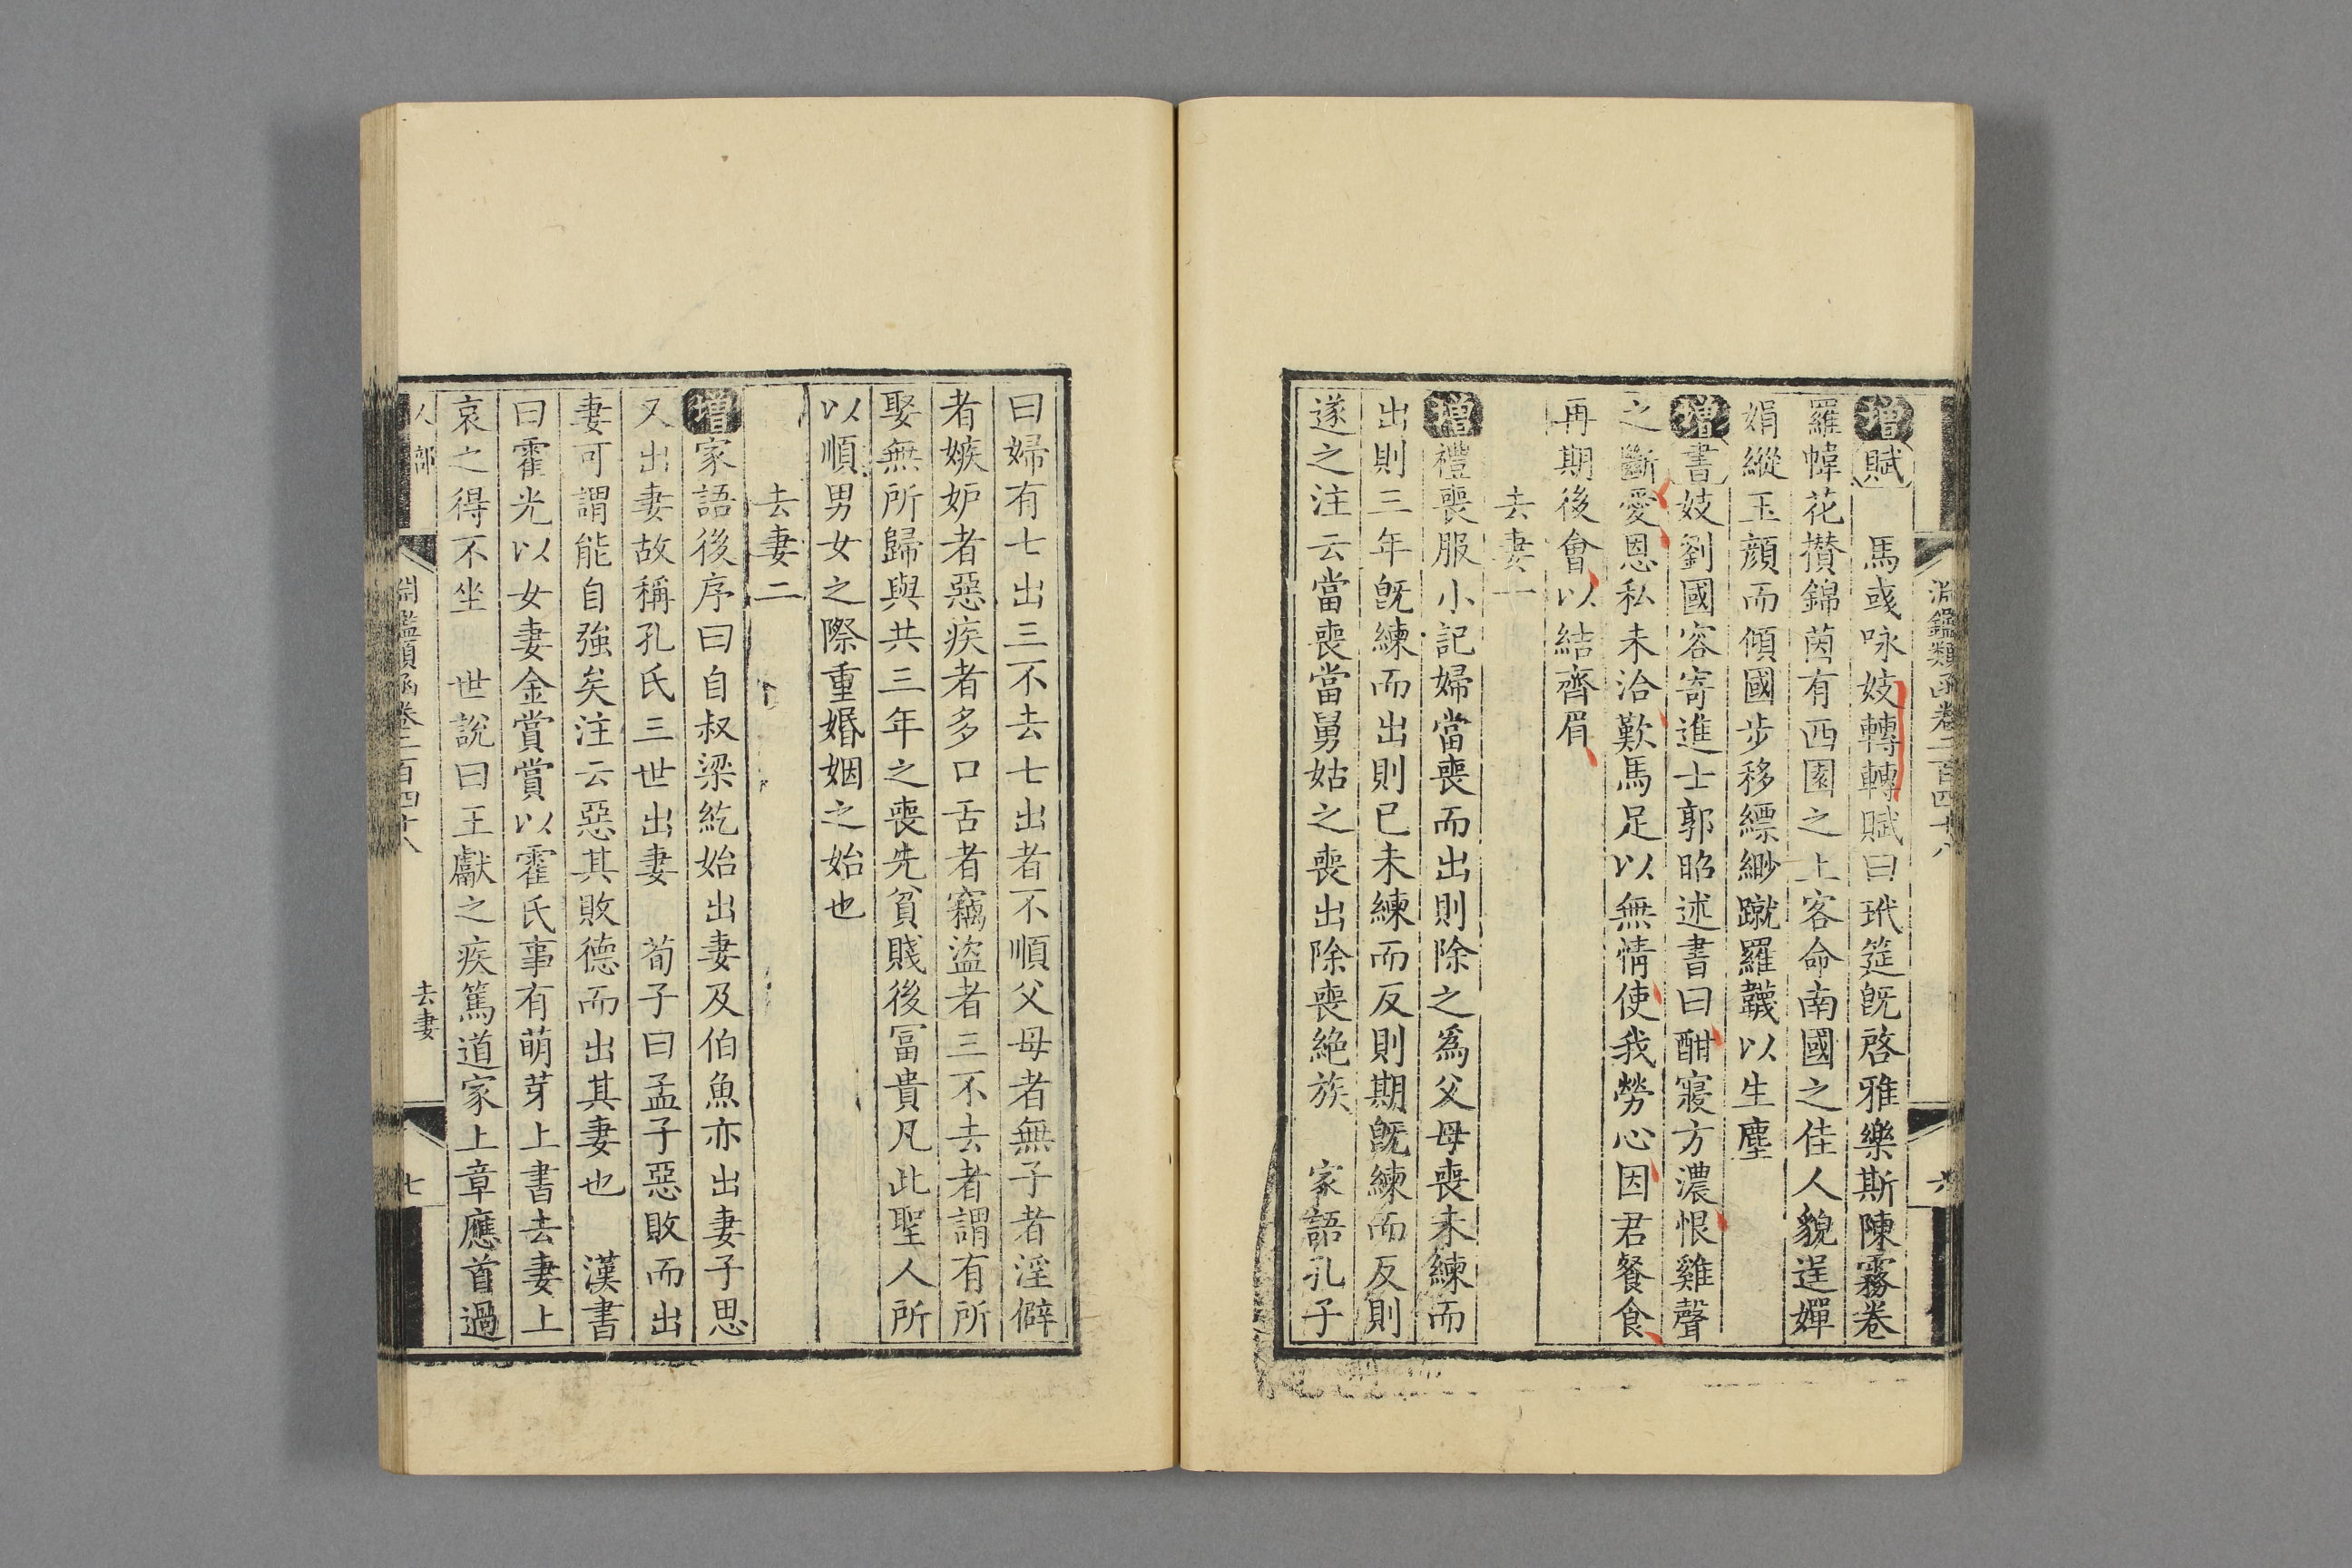 淵鑑類函卷二百四十八
六
增賦　馬彧咏妓轉轉賦曰玳筵旣啓雅樂斯陳霧卷
羅幃花攢錦茵有西園之上客命南國之佳人貌逞嬋
娟縱玉顏而傾國步移縹緲蹴羅韈以生塵
增書妓劉國容寄進士郭昭述書曰酣寢方濃恨雞聲
之斷愛恩私未洽歎馬足以無情使我勞心因君餐食
再期後會以結齊眉
去妻一
增禮喪服小記婦當喪而出則除之爲父母喪未練而
出則三年旣練而出則已未練而反則期旣練而反則
遂之注云當喪當舅姑之喪喪出除喪絶族　家語孔子
曰婦有七出三不去七出者不順父母者無子者淫僻
者嫉妒者惡疾者多口舌者竊盜者三不去者謂有所
娶無所歸與共三年之喪先貧賤後冨貴凡此聖人所
以順男女之際重婚姻之始也
去妻二
增家語後序曰自叔梁紇始出妻及伯魚亦出妻子思
又出妻故稱孔氏三世出妻　荀子曰孟子惡敗而出
妻可謂能自強矣注云惡其敗德而出其妻也　漢書
曰霍光以女妻金賞賞以霍氏事有萌芽上書去妻上
哀之得不坐　世說曰王獻之疾篤道家上章應首過
人部
淵鑑類函卷二百四十八
去妻
七